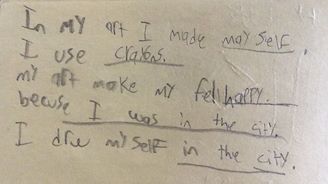 In my art I made may self.
I use crayons.
my art make my fel happy.
becuse I was in the city.
I drw my self in the city.